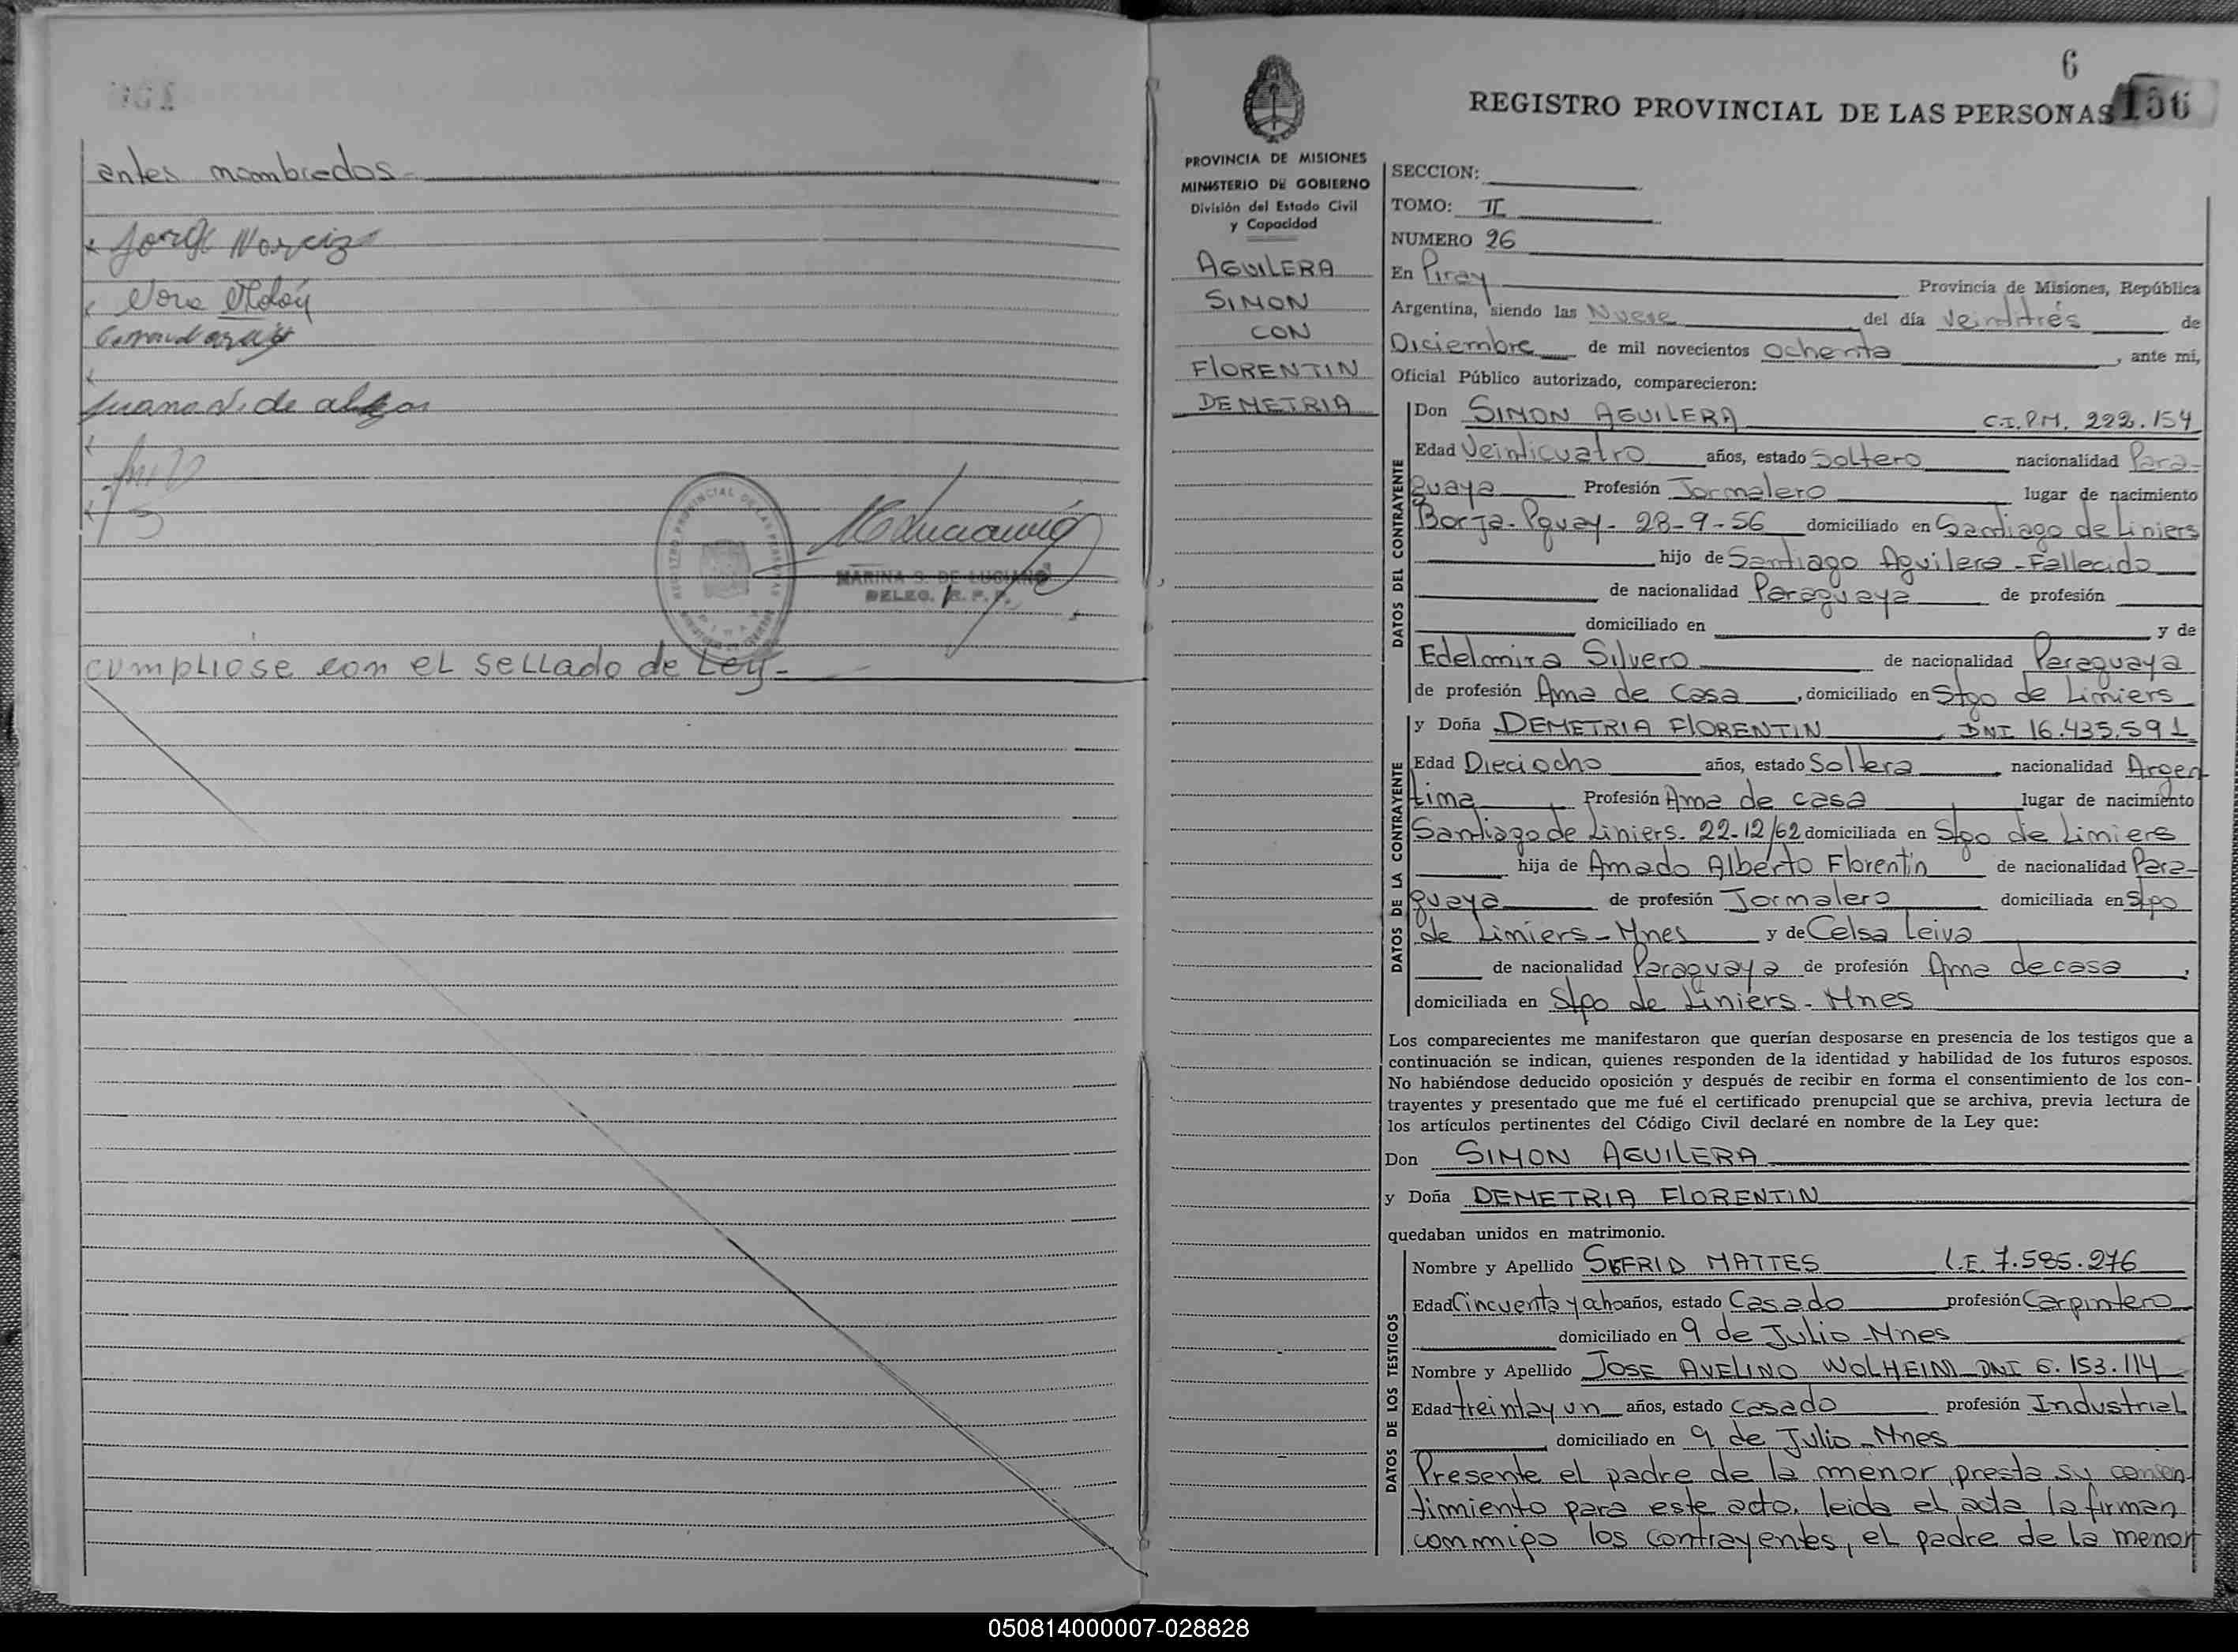 antes nombrados
Jorge Narciz
Juana N. de
MARINA S. DE LUCIANO
DELEG. R. P. P.
cumpliose con el sellado de Ley-
6
REGISTRO PROVINCIAL DE LAS PERSONAS 136
PROVINCIA DE MISIONES
MINISTERIO DE GOBIERNO
División del Estado Civil
y Capacidad
AGUILERA
SIMON
CON
FLORENTIN
DEMETRIA
SECCION:
TOMO: II
NUMERO 26
En Piray Provincia de Misiones, República
Argentina, siendo las Nueve del día veintitrés de
Diciembre de mil novecientos ochenta, ante mi,
Oficial Público autorizado, comparecieron:
DATOS DEL CONTRAYENTE
Don SIMON AGUILERA C.I.P.M. 222.154
Edad Veinticuatro años, estado Soltero nacionalidad Para-
guaya Profesión Jornalero lugar de nacimiento
Borja-Pguay- 28-9-56 domiciliado en Santiago de Liniers
hijo de Santiago Aguilera-Fallecido
de nacionalidad Paraguaya de profesión
domiciliado en y de
Edelmira Silvero de nacionalidad Paraguaya
de profesión Ama de Casa, domiciliado en Stgo de Liniers
DATOS DE LA CONTRAYENTE
y Doña DEMETRIA FLORENTIN DNI 16.435.591
Edad Dieciocho años, estado Soltera nacionalidad Argen
tina Profesión Ama de casa lugar de nacimiento
Santiago de Liniers. 22-12/62 domiciliada en Stgo de Liniers
hija de Amado Alberto Florentín de nacionalidad Para-
guaya de profesión Jornalero domiciliada en Stgo
de Liniers-Mnes y de Celsa Leiva
de nacionalidad Paraguaya de profesión Ama de casa,
domiciliada en Stgo de Liniers-Mnes
Los comparecientes me manifestaron que querían desposarse en presencia de los testigos que a
continuación se indican, quienes responden de la identidad y habilidad de los futuros esposos.
No habiéndose deducido oposición y después de recibir en forma el consentimiento de los con-
trayentes y presentado que me fué el certificado prenupcial que se archiva, previa lectura de
los artículos pertinentes del Código Civil declaré en nombre de la Ley que:
Don SIMON AGUILERA
y Doña DEMETRIA FLORENTIN
quedaban unidos en matrimonio.
DATOS DE LOS TESTIGOS
Nombre y Apellido SIFRID MATTES L.E. 7.585.276
Edad Cincuenta y ocho años, estado Casado profesión Carpintero
domiciliado en 9 de Julio-Mnes
Nombre y Apellido JOSE AVELINO WOLHEIM DNI 6.153.114
Edad treinta y un años, estado Casado profesión Industrial
domiciliado en 9 de Julio-Mnes
Presente el padre de la menor, presta su consen-
timiento para este acto. leida el acta la firman
conmigo los contrayentes, el padre de la menor
050814000007-028828